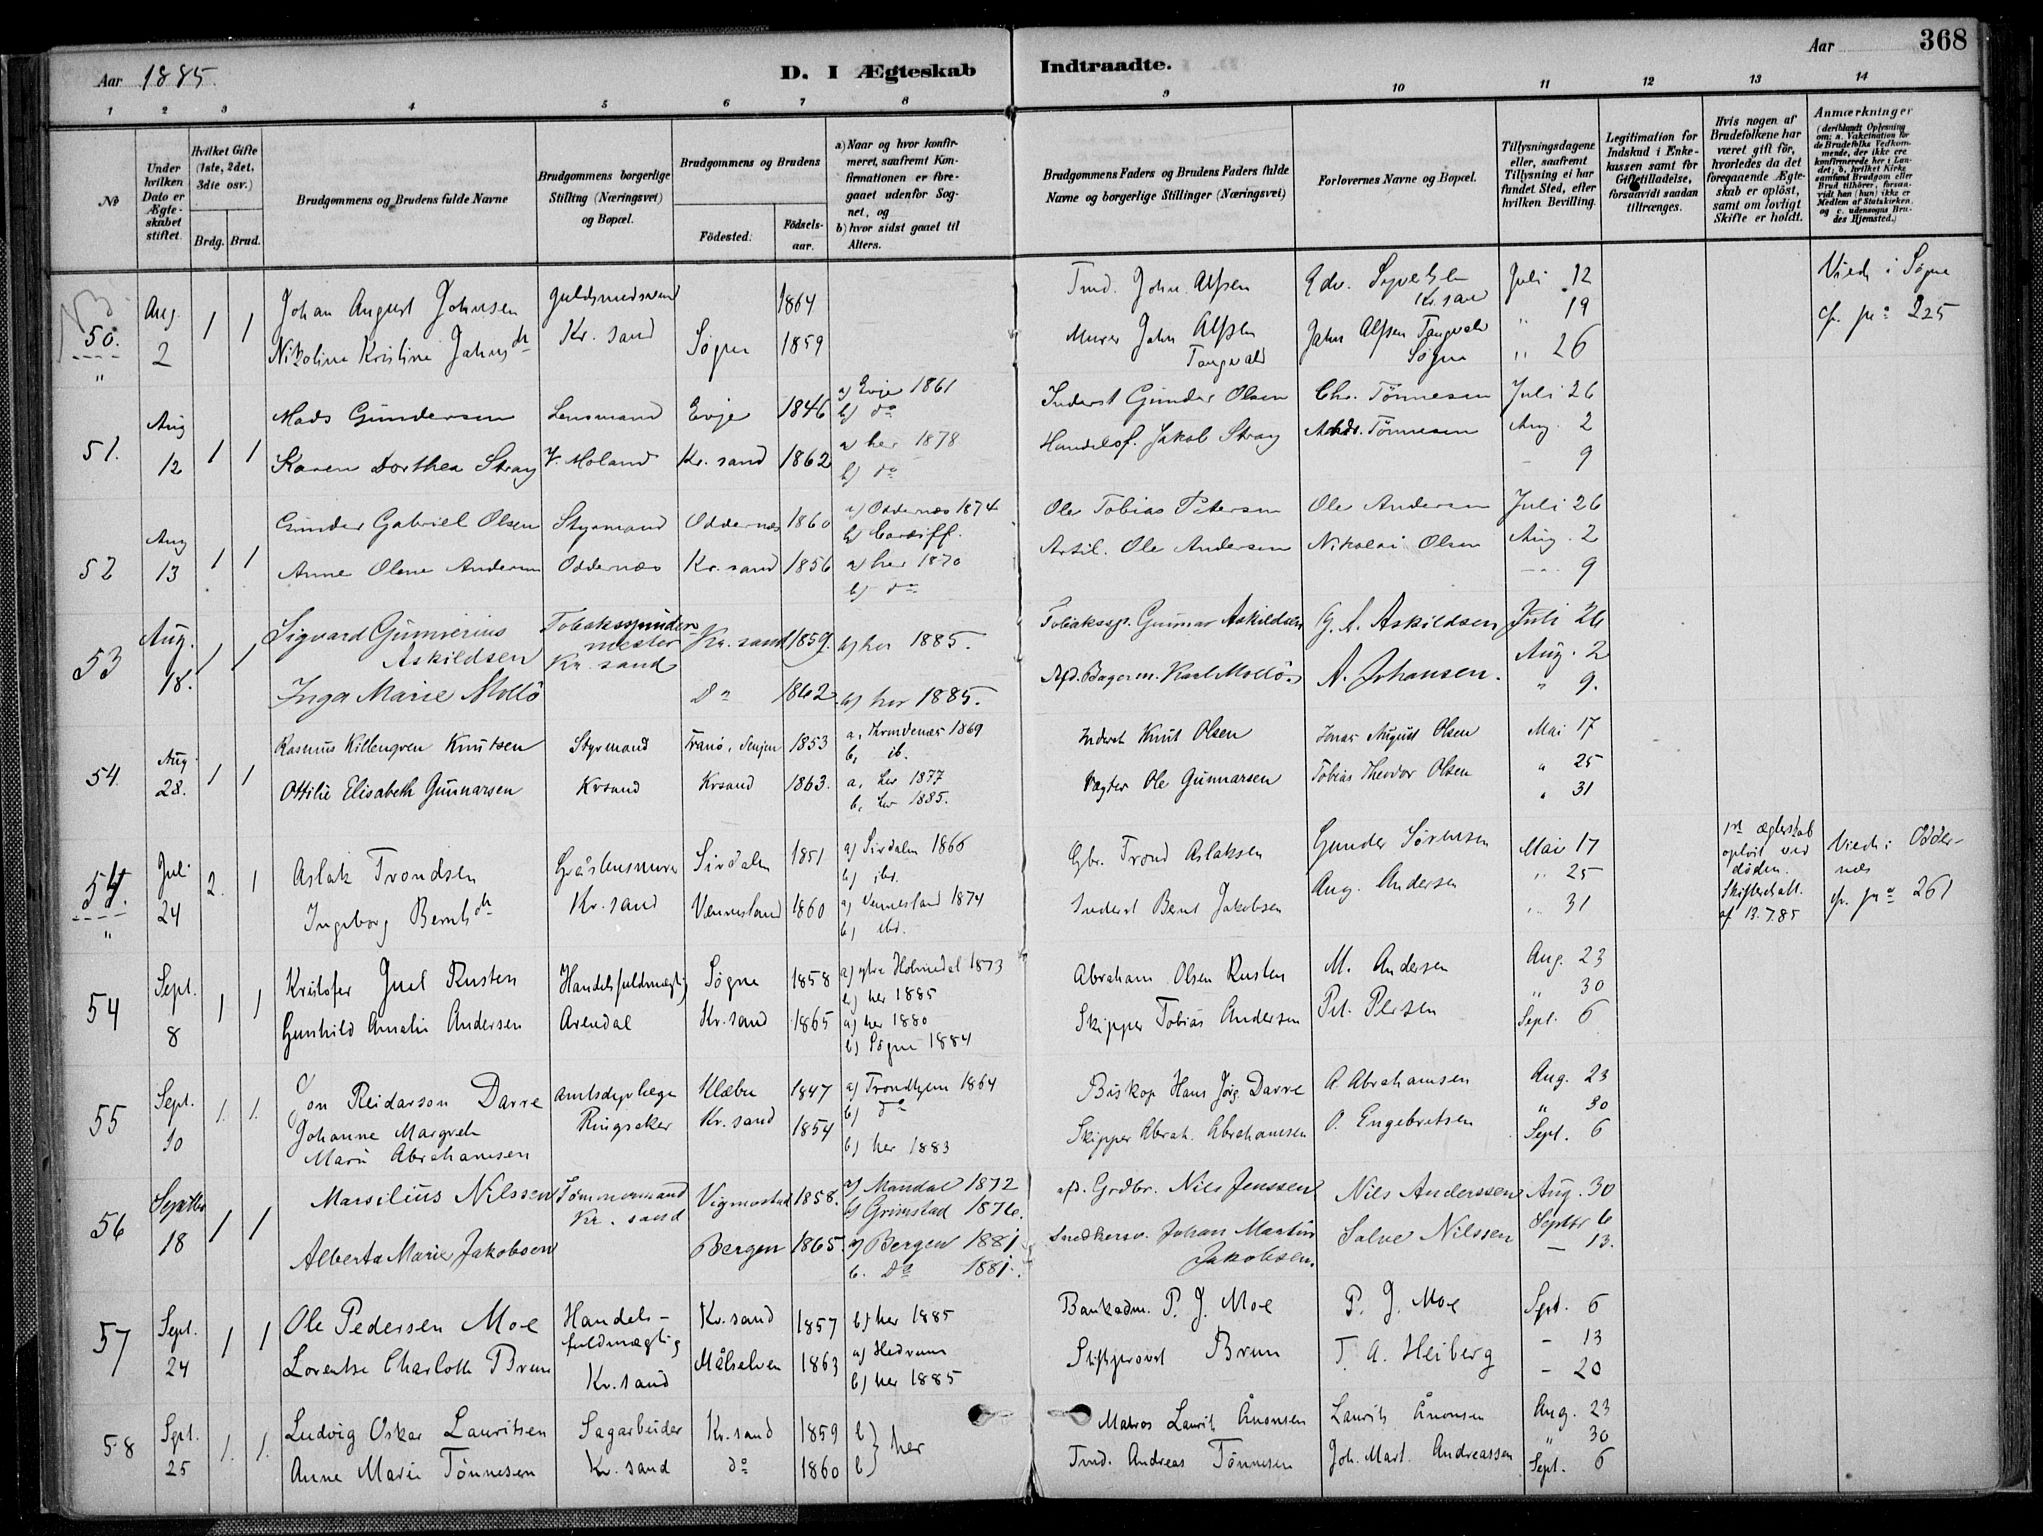 Aar 1885.
D. I Ægteskab Indtraadte.
Aar 368
1 2 3 4 5 6 7 8 9 10 11 12 13 14
No
Under hvilken Dato er Ægteskabet stiftet.
Hvilket Gifte (1ste, 2det, 3die osv.)
Brdg. Brud.
Brudgommens og Brudens fulde Navne
Brudgommens borgerlige Stilling (Næringsvei) og Bopæl.
Brudgommens og Brudens
Födested. Födsels-aar.
a) Naar og hvor konfirmeret, saafremt Konfirmationen er foregaaet udenfor Sognet, og
b) hvor sidst gaaet til Alters.
Brudgommens Faders og Brudens Faders fulde Navne og borgerlige Stillinger (Næringsvei)
Forlovernes Navne og Bopæl.
Tillysningsdagene eller, saafremt Tillysning ei har fundet Sted, efter hvilken Bevilling.
Legitimation for Indskud i Enkekassen samt for Giftetilladelse, forsaavidt saadan tiltrænges.
Hvis nogen af Brudefolkene har været gift för, hvorledes da det foregaaende Ægteskab er oplöst, samt om lovligt Skifte er holdt.
Anmærkninger
(deriblandt Oplysning om: a. Vakcination for de Brudefolks Vedkommende, der ikke ere konfirmerede her i Landet; b. hvilket Kirkesamfund Brudgom eller Brud tilhörer, forsaavidt han (hun) ikke er Medlem af Statskirken, og c. udensogns Brudes Hjemsted.)
50. Aug. 2 1 1 Johan August Johnsen Guldsmedsvend Kr.sand 1864 Tmd. John Alfsen Adv. Syvertsen Kr.sand Juli 12
" Nikoline Kristine Jahnsdtr Søgne 1859 Murer Jahn Alfsen Tangvald Jahn Alfsen Tangvald Søgne " 19
" 26
Viede i Søgne
cfr. pag 225
51. Aug 12 1 1 Mads Gundersen Lensmand Evje 1846 a) Evje 1861 b) do Inderst Gunder Olsen Chr. Tönnesen Juli 26
Karen Dorthea Stray V. Moland Kr.sand 1862 a) her 1878 b) do Handelsf. Jakob Stray Andr. Tønnesen Aug. 2
- 9
52 Aug 13 1 1 Gunder Gabriel Olsen Styrmand Oddernæs 1860 a) Oddernæs 1874 b) Cardiff. Ole Tobias Petersen Ole Andersen Juli 26
Anne Olene Andersen Oddernæs Kr.sand 1856 a) her 1870 b) do Artil. Ole Andersen Nikolai Olsen Aug. 2
- 9
53 Aug. 18. 1 1 Sigvard Gunverius Askildsen Tobaksspindermester Kr. sand Kr. sand 1859. b) her 1885. Tobakssp. Gunnar Askildsen G. A. Askildsen Juli 26
Inga Marie Mollö Do 1862 b) her 1885. Afd. Bagerm. Karl Mollö A. Johansen. Aug. 2
" 9.
54. Aug. 28. 1 1 Rasmus Killengren Knutsen Styrmand Tranö, Senjen 1853 b, ib. Inderst Knut Olsen Jonas August Olsen Mai 17
Ottilie Elisabeth Gunnarsen Krsand Krsand 1863. a, her 1877 b, her 1885. Vægter Ole Gunnarsen Tobias Theodor Olsen " 25
" 31
54. Juli 24 2. 1 Aslak Trondsen Kr. sand Sirdalen 1851 a) Sirdalen 1866 b) ibd. Gbr. Trond Aslaksen Gunder Sörensen Mai 17
" Ingeborg Berntsdtr Vennesland 1860 a) Vennesland 1874 b) ibd. Inderst Bernt Jakobsen Aug. Andersen " 25
" 31
1ste ægteskab opløst ved døden. Skifteatt. af 13.7.85
Viede i Oddernes
cfr. pag 261
54 Sept. 8 1 1 Kristofer Juel Rusten Handelsfuldmægtig Søgne 1858 a) ytre Holmedal 1873 b) her 1885 Abraham Olsen Rusten M. Andersen Aug. 23
Gunhild Amalie Andersen Arendal Kr. sand 1865 a) her 1880 b) Søgne 1884 Skipper Tobias Andersen Pet. Persen " 30
Sept. 6
55 Sept. 10 1. 1. Jon Reidarson Darre amtsdyrlæge Klæbu 1847 a) Trondhjem 1864 b) do Biskop Hans Jörg. Darre A. Abrahamsen Aug. 23
Johanne Margreth Marie Abrahamsen Ringsaker Kr. sand 1854 b) her 1883 Skipper Abrah. Abrahamsen O. Engebretsen " 30
Sept. 6
56 Septbr 18 1 1 Marsilius Nilssen Tømmermand Kr. sand Vigmostad 1858. a) Mandal 1872 b) Grimstad 1876. afd. Grdbr. Nils Jenssen Nils Anderssen Aug. 30
Alberta Marie Jakobsen Bergen 1865 a) Bergen 1881. b. Do 1881. Snedkersv. Johan Martin Jakobsen. Salve Nilssen Septbr 6
- 13.
57 Sept. 24 1 1 Ole Pedersen Moe Handelsfuldmægtig Kr. sand 1857 b) her 1885 Bankadm. P. J. Moe P. J. Moe Sept. 6
Lorentse Charlotte Brun Kr. sand Målselven 1863 a) Hedrum b) her 1885 Stiftsprovst Brun T. A. Heiberg - 13
- 20
58 Sept. 25 1. 1. Ludvig Oskar Lauritsen Sagarbeider Kr. sand 1859 b) her Matros Laurits Ånonsen Laurits Ånonsen Aug. 23
Anne Marie Tönnesen Kr. sand do 1860 b) Tmd. Andreas Tönnesen Joh. Mart. Andreassen " 30
Sept. 6